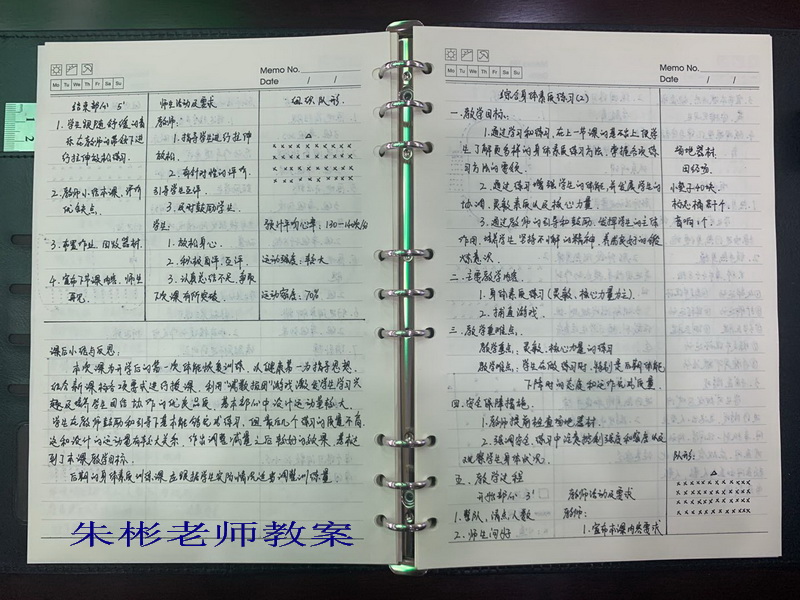 Memo No.
Mo Tu We Th Fr Sa Su
Date / /
结束部分 5'
师生活动及要求
组织队形
1. 学生跟随舒缓的音
乐在教师的带领下进
行拉伸放松练习.
2. 教师小结本课,评价
优缺点.
3. 布置作业,回收器材.
4. 宣布下节课内容,师生
再见.
教师:
1. 指导学生进行拉伸
放松.
2. 有针对性的评价,
引导学生互评.
3. 及时鼓励学生.
学生:
1. 放松身心.
2. 积极自评、互评.
3. 认真总结不足,争取
下次课有所突破.
预计平均心率:130-140次/分
运动强度:较大
运动密度:70%
课后小结与反思:
本次课为开学后的第一次体能恢复训练,以健康第一为指导思想,
结合新课标各项要求进行授课,利用"喊数抱团"游戏激发学生学习兴
趣及培养学生团结协作的优良品质,基本部分中设计运动量较大,
学生在教师鼓励和引导下基本能够完成练习,但最后几个练习的质量不高,
这和设计的运动量有较大关系,作出调整减量之后较好的效果,
到了本课教学目标.
后期的身体素质训练课应根据学生实际情况适当调整训练量.
朱彬老师教案
Memo No.
Mo Tu We Th Fr Sa Su
Date / /
综合身体素质练习(2)
一. 教学目标:
1. 通过学习和练习,在上一节课的基础上使学
生了解更多样的身体素质练习方法,掌握各项练
习方法的要领.
2. 通过练习增强学生的体能,并发展学生的
协调、灵敏素质以及核心力量.
3. 通过教师的引导和鼓励,发挥学生的主体
作用,培养学生坚持不懈的精神,养成良好的锻
炼意识.
场地器材
田径场
小垫子40块.
标志桶若干个.
音响1个.
二. 主要教学内容.
1. 身体素质练习(灵敏、核心力量为主).
2. 捕鱼游戏.
三. 教学重难点.
教学重点:灵敏、核心力量的练习
教学难点:学生在做练习时,特别是后期体能
下降时的态度和动作完成质量.
四. 安全保障措施.
1. 教师提前检查场地器材.
2. 强调安全,练习中注意控制强度和密度以及
观察学生身体状况.
队形:
五. 教学过程
开始部分 3'
教师活动及要求
1. 整队,清点人数
教师:
2. 师生问好
1. 宣布本课内容要求